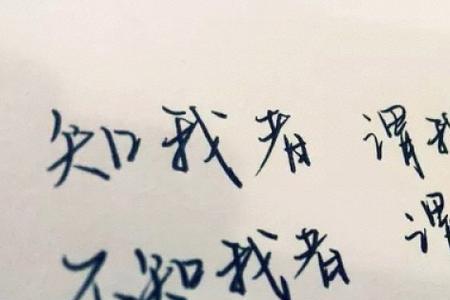 知我者 谓我
不知我者 谓